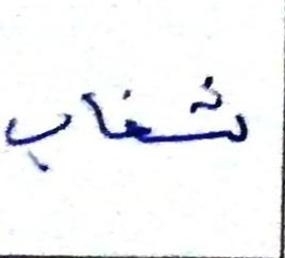 شغاب